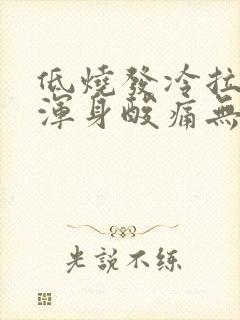 低燒發冷拉
渾身酸痛無
光說不练